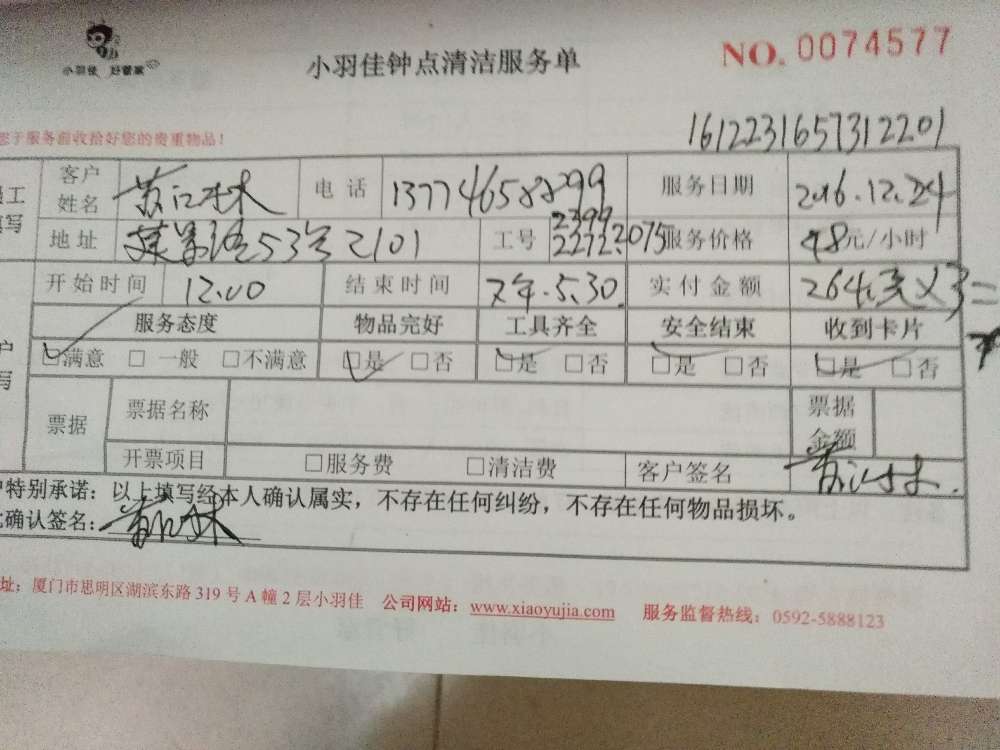 小羽佳 好管家
小羽佳钟点清洁服务单
NO. 0074577
您于服务前收拾好您的贵重物品！
1612231657312201
员工
填写
客户
姓名
电话
服务日期 2016.12.24
地址 53号2101
工号
服务价格 48元/小时
开始时间 12.00
结束时间 下午.5.30
实付金额 264元
户
写
服务态度 物品完好 工具齐全 安全结束 收到卡片
□满意 □一般 □不满意 □是 □否 □是 □否 □是 □否 □是 □否
票据
票据名称
票据
金额
开票项目 □服务费 □清洁费 客户签名
户特别承诺：以上填写经本人确认属实，不存在任何纠纷，不存在任何物品损坏。
确认签名：
址：厦门市思明区湖滨东路 319 号 A 幢 2 层小羽佳 公司网站：www.xiaoyujia.com 服务监督热线：0592-5888123